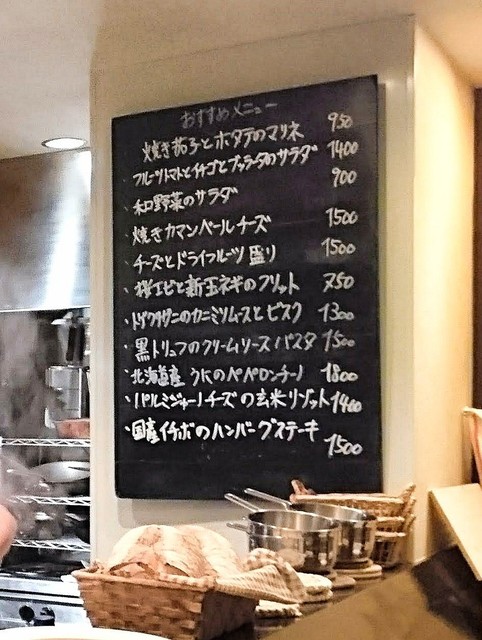 おすすめメニュー
焼き茄子とホタテのマリネ 950
フルーツトマトとイチゴとブッラータのサラダ 1400
・和野菜のサラダ 900
・焼きカマンベールチーズ 1500
・チーズとドライフルーツ盛り 1500
・桜エビと新玉ネギのフリット 750
・トゲクリガニのカニミソムースとビスク 1300
・黒トリュフのクリームソースパスタ 1500
・北海道産 うにのペペロンチーノ 1800
・パルミジャーノチーズの玄米リゾット 1400
・国産イチボのハンバーグステーキ
1500